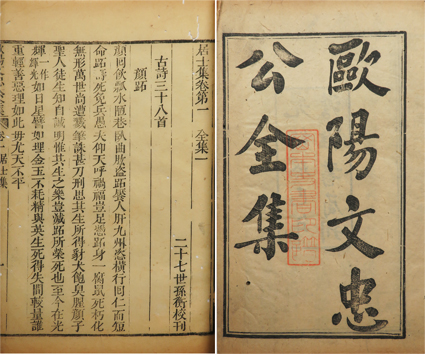 歐陽文忠
公全集
居士集卷第一 全集一
二十七世孫衡校刊
古詩三十八首
顏跖
顏回飲瓢水陋巷臥曲肱盜跖饜人肝九州恣橫行回仁而短
命跖壽死免兵愚夫仰天呼禍福豈足憑跖身一腐鼠死朽化
無形萬世尚遭戮筆誅甚刀刑思其生所得豺犬飽臭腥顏子
聖人徒生知自誠明惟其生之樂豈減跖所榮死也至今在光
輝一作輝光如日星譬如埋金玉不耗精與英生死得失間較量誰
重輕善惡理如此毋尤天不平